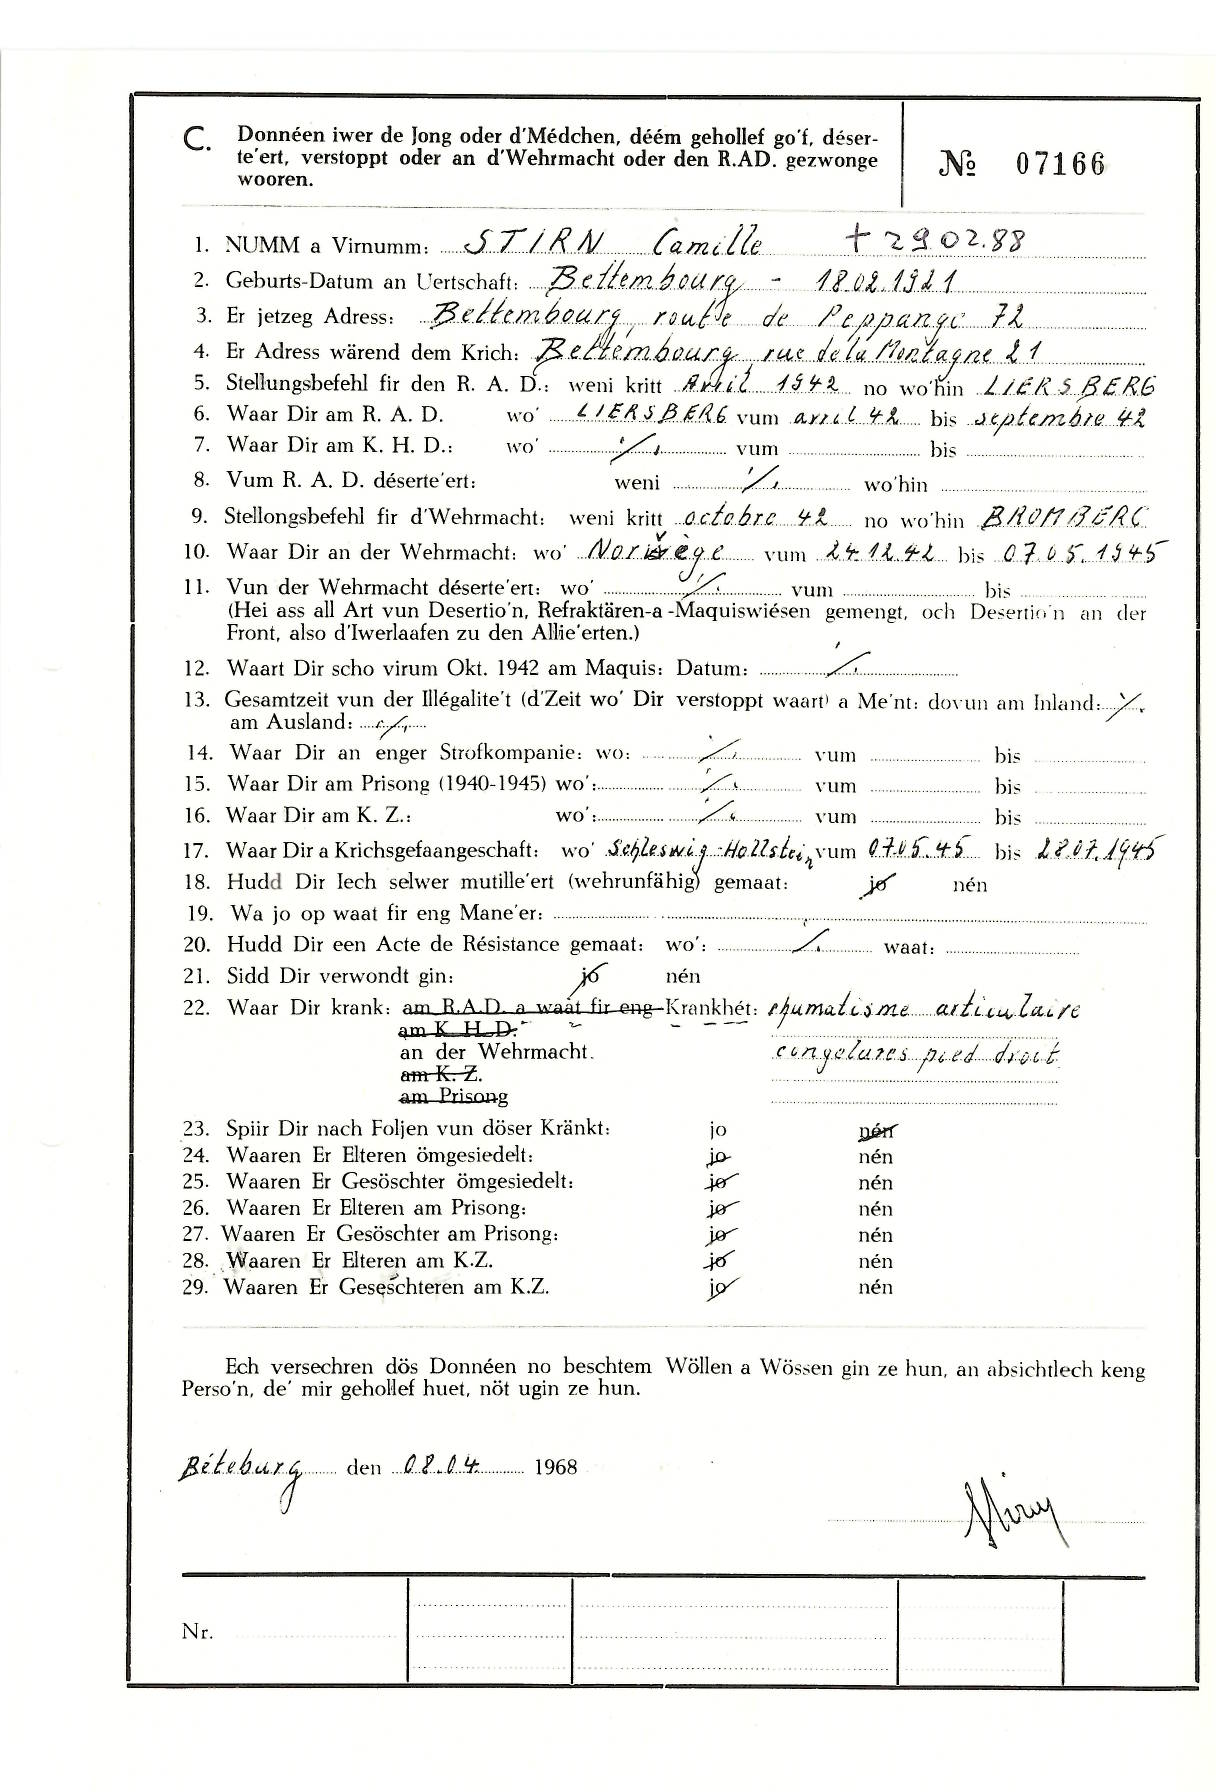 C. Donnéen iwer de Jong oder d'Médchen, déém gehollef go'f, déser-
te'ert, verstoppt oder an d'Wehrmacht oder den R.AD. gezwonge
wooren.
№ 07166
1. NUMM a Virnumm: STIRN Camille + 29.02.88
2. Geburts-Datum an Uertschaft: Bettembourg - 18.02.1921
3. Er jetzeg Adress: Bettembourg, route de Peppange 72
4. Er Adress wärend dem Krich: Bettembourg, rue de la Montagne 21
5. Stellungsbefehl fir den R. A. D.: weni kritt Avril 1942 no wo'hin LIERSBERG
6. Waar Dir am R. A. D. wo' LIERSBERG vum avril 42 bis septembre 42
7. Waar Dir am K. H. D.: wo' ./. vum bis
8. Vum R. A. D. déserte'ert: weni ./. wo'hin
9. Stellongsbefehl fir d'Wehrmacht: weni kritt octobre 42 no wo'hin BROMBERG
10. Waar Dir an der Wehrmacht: wo' Norvège vum 24.12.42 bis 07.05.1945
11. Vun der Wehrmacht déserte'ert: wo' ./. vum bis
(Hei ass all Art vun Desertio'n, Refraktären-a -Maquiswiésen gemengt, och Desertio'n an der
Front, also d'Iwerlaafen zu den Allie'erten.)
12. Waart Dir scho virum Okt. 1942 am Maquis: Datum: ./.
13. Gesamtzeit vun der Illégalite't (d'Zeit wo' Dir verstoppt waart) a Me'nt: dovun am Inland: ./.
am Ausland: ./.
14. Waar Dir an enger Strofkompanie: wo: ./. vum bis
15. Waar Dir am Prisong (1940-1945) wo': ./. vum bis
16. Waar Dir am K. Z.: wo': ./. vum bis
17. Waar Dir a Krichsgefaangeschaft: wo' Schleswig-Hollstein vum 07.05.45 bis 28.07.1945
18. Hudd Dir Iech selwer mutille'ert (wehrunfähig) gemaat: jo nén
19. Wa jo op waat fir eng Mane'er:
20. Hudd Dir een Acte de Résistance gemaat: wo': ./. waat:
21. Sidd Dir verwondt gin: jo nén
22. Waar Dir krank: am R.A.D. a waat fir eng Krankhét: rhumatisme articulaire
am K. H. D.
an der Wehrmacht. congelures pied droit
am K. Z.
am Prisong
23. Spiir Dir nach Foljen vun döser Kränkt: jo nén
24. Waaren Er Elteren ömgesiedelt: jo nén
25. Waaren Er Gesöschter ömgesiedelt: jo nén
26. Waaren Er Elteren am Prisong: jo nén
27. Waaren Er Gesöschter am Prisong: jo nén
28. Waaren Er Elteren am K.Z. jo nén
29. Waaren Er Geseschteren am K.Z. jo nén
Ech versechren dös Donnéen no beschtem Wöllen a Wössen gin ze hun, an absichtlech keng
Perso'n, de' mir gehollef huet, nöt ugin ze hun.
Béteburg den 08.04. 1968
Stirn
Nr.